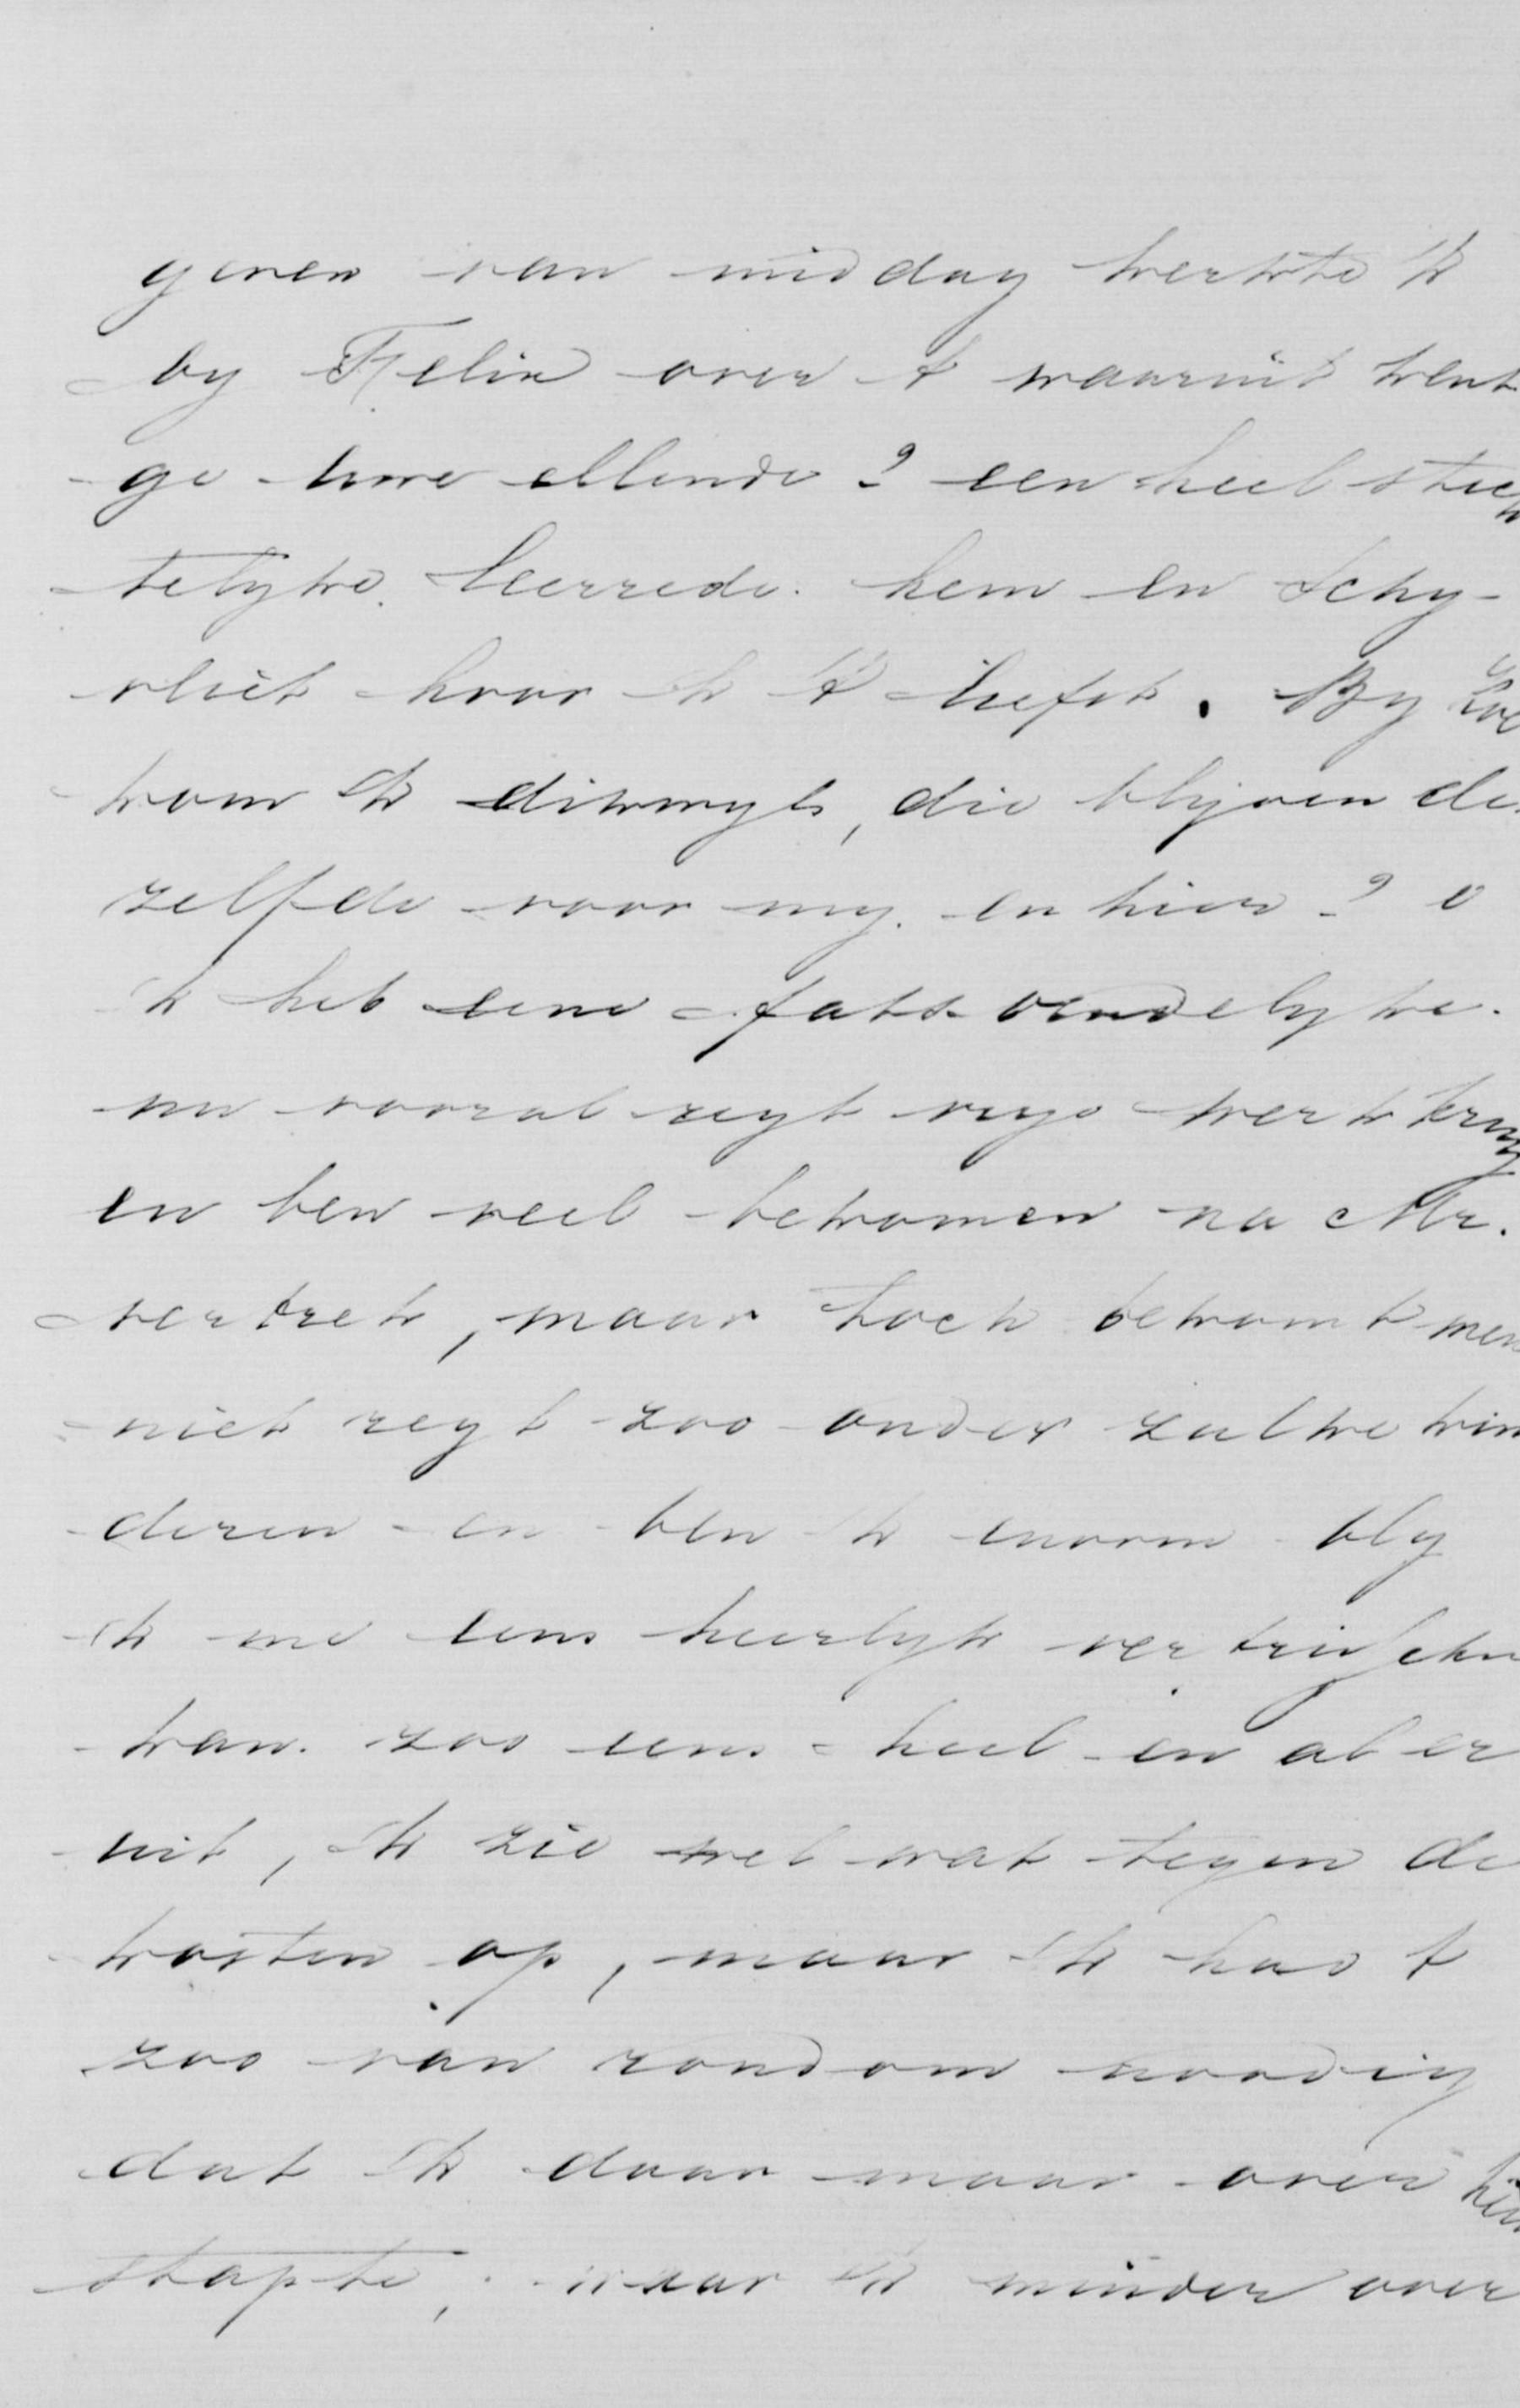 geven van middag kerkte ik
by Felix over 't waaruit kent
ge uwe ellende? een heel stich
telyke leerrede. hem en Schy-
vliet hoor ik 't liefst. By
kom ik dikwyls, die blyven de
zelfde voor my. en hier? o
ik heb eene fatsoendelyke.
nu vooral regt vrye werkkring
en ben veel bekomen na Mr.
vertrek, maar toch bekomt men
niet regt zoo onder zulke kin
deren en ben ik enorm bly
ik me eens heerlyk verfrisschen
kan. zoo eens heel en al er
uit, ik zie wel wat tegen de
kosten op, maar ik had 't
zoo van rondom noodig
dat ik daar maar over heen
stapte, waar ik minder over